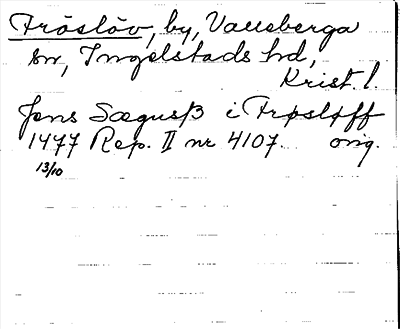 Fröslöv, by, Vallsberga
sn, Ingelstads hd,
Krist. l.
Jens Sægusß i Frøsløff
1477 Rep. II nr 4107. orig.
13/10